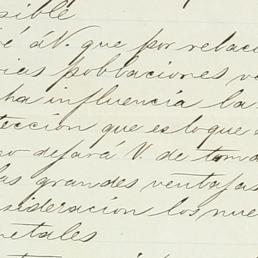 sible
é á V. que por relaci
rias poblaciones ve
ha influencia la
tección que es loque
so dejará V. de toma
las grandes ventajas
nsideracion los nue
metales